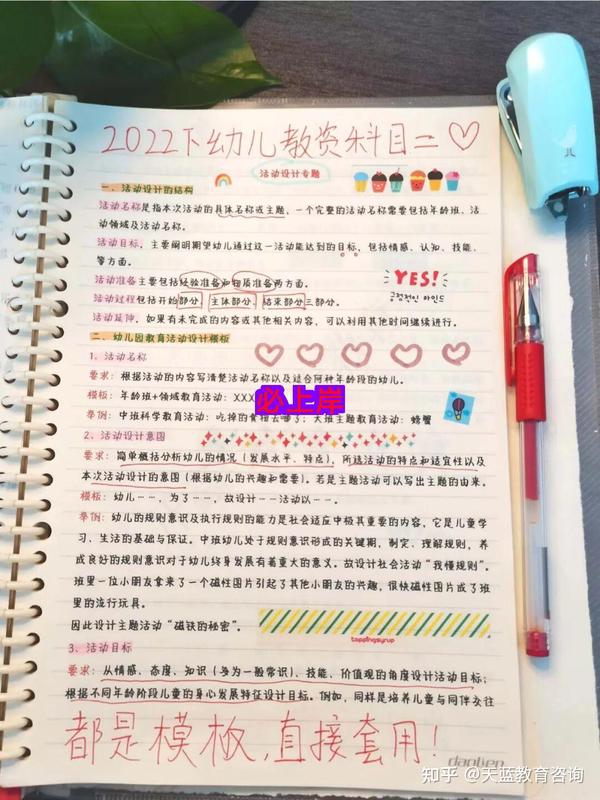 2022下幼儿教资科目二
活动设计专题
一、活动设计的结构
活动名称是指本次活动的具体名称或主题，一个完整的活动名称需要包括年龄班、活
动领域及活动名称。
活动目标，主要阐明期望幼儿通过这一活动能达到的目标，包括情感、认知、技能、
等方面。
活动准备主要包括经验准备和物质准备两方面。
YES!
긍정적인 마인드
活动过程包括开始部分、主体部分、结束部分三部分。
活动延伸，如果有未完成的内容或其他相关内容，可以利用其他时间继续进行。
二、幼儿园教育活动设计模板
1、活动名称
要求：根据活动的内容写清楚活动名称以及适合何种年龄段的幼儿。
模板：年龄班+领域教育活动：XXX
必上岸
举例：中班科学教育活动：吃掉的食物去哪了；大班主题教育活动：螃蟹
2、活动设计意图
要求：简单概括分析幼儿的情况（发展水平、特点），所选活动的特点和适宜性以及
本次活动设计的意图（根据幼儿的兴趣和需要）。若是主题活动可以写出主题的由来。
模板：幼儿……，为了……，故设计……活动以……。
举例：幼儿的规则意识及执行规则的能力是社会适应中极其重要的内容，它是儿童学
习、生活的基础与保证。中班幼儿处于规则意识形成的关键期，制定、理解规则，养
成良好的规则意识对于幼儿终身发展有着重大的意义。故设计社会活动“我懂规则”。
班里一位小朋友拿来了一个磁性图片引起了其他小朋友的兴趣，很快磁性图片成了班
里的流行玩具。
因此设计主题活动“磁铁的秘密”。
toppingsyrup
3、活动目标
要求：从情感、态度、知识（多为一般常识）、技能、价值观的角度设计活动目标；
根据不同年龄阶段儿童的身心发展特征设计目标。例如，同样是培养儿童与同伴交往
都是模板，直接套用！
知乎 @天蓝教育咨询